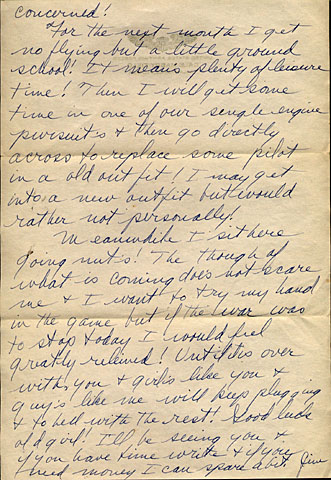 concerned!
For the next month I get
no flying but a little ground
school! It means plenty of leisure
time! Then I will get some
time in one of our single engine
pursuits & then go directly
across to replace some pilot
in a old outfit! I may get
into a new outfit but would
rather not personally!
Meanwhile I sit here
going nuts! The though of
what is coming does not scare
me & I want to try my hand
in the game but if the war was
to stop today I would feel
greatly relieved! Until its over
with, you & girls like you &
guys like me will keep plugging
& to hell with the rest! Good luck
old girl! I'll be seeing you &
if you have time write & if you
need money I can spare a bit. Jim